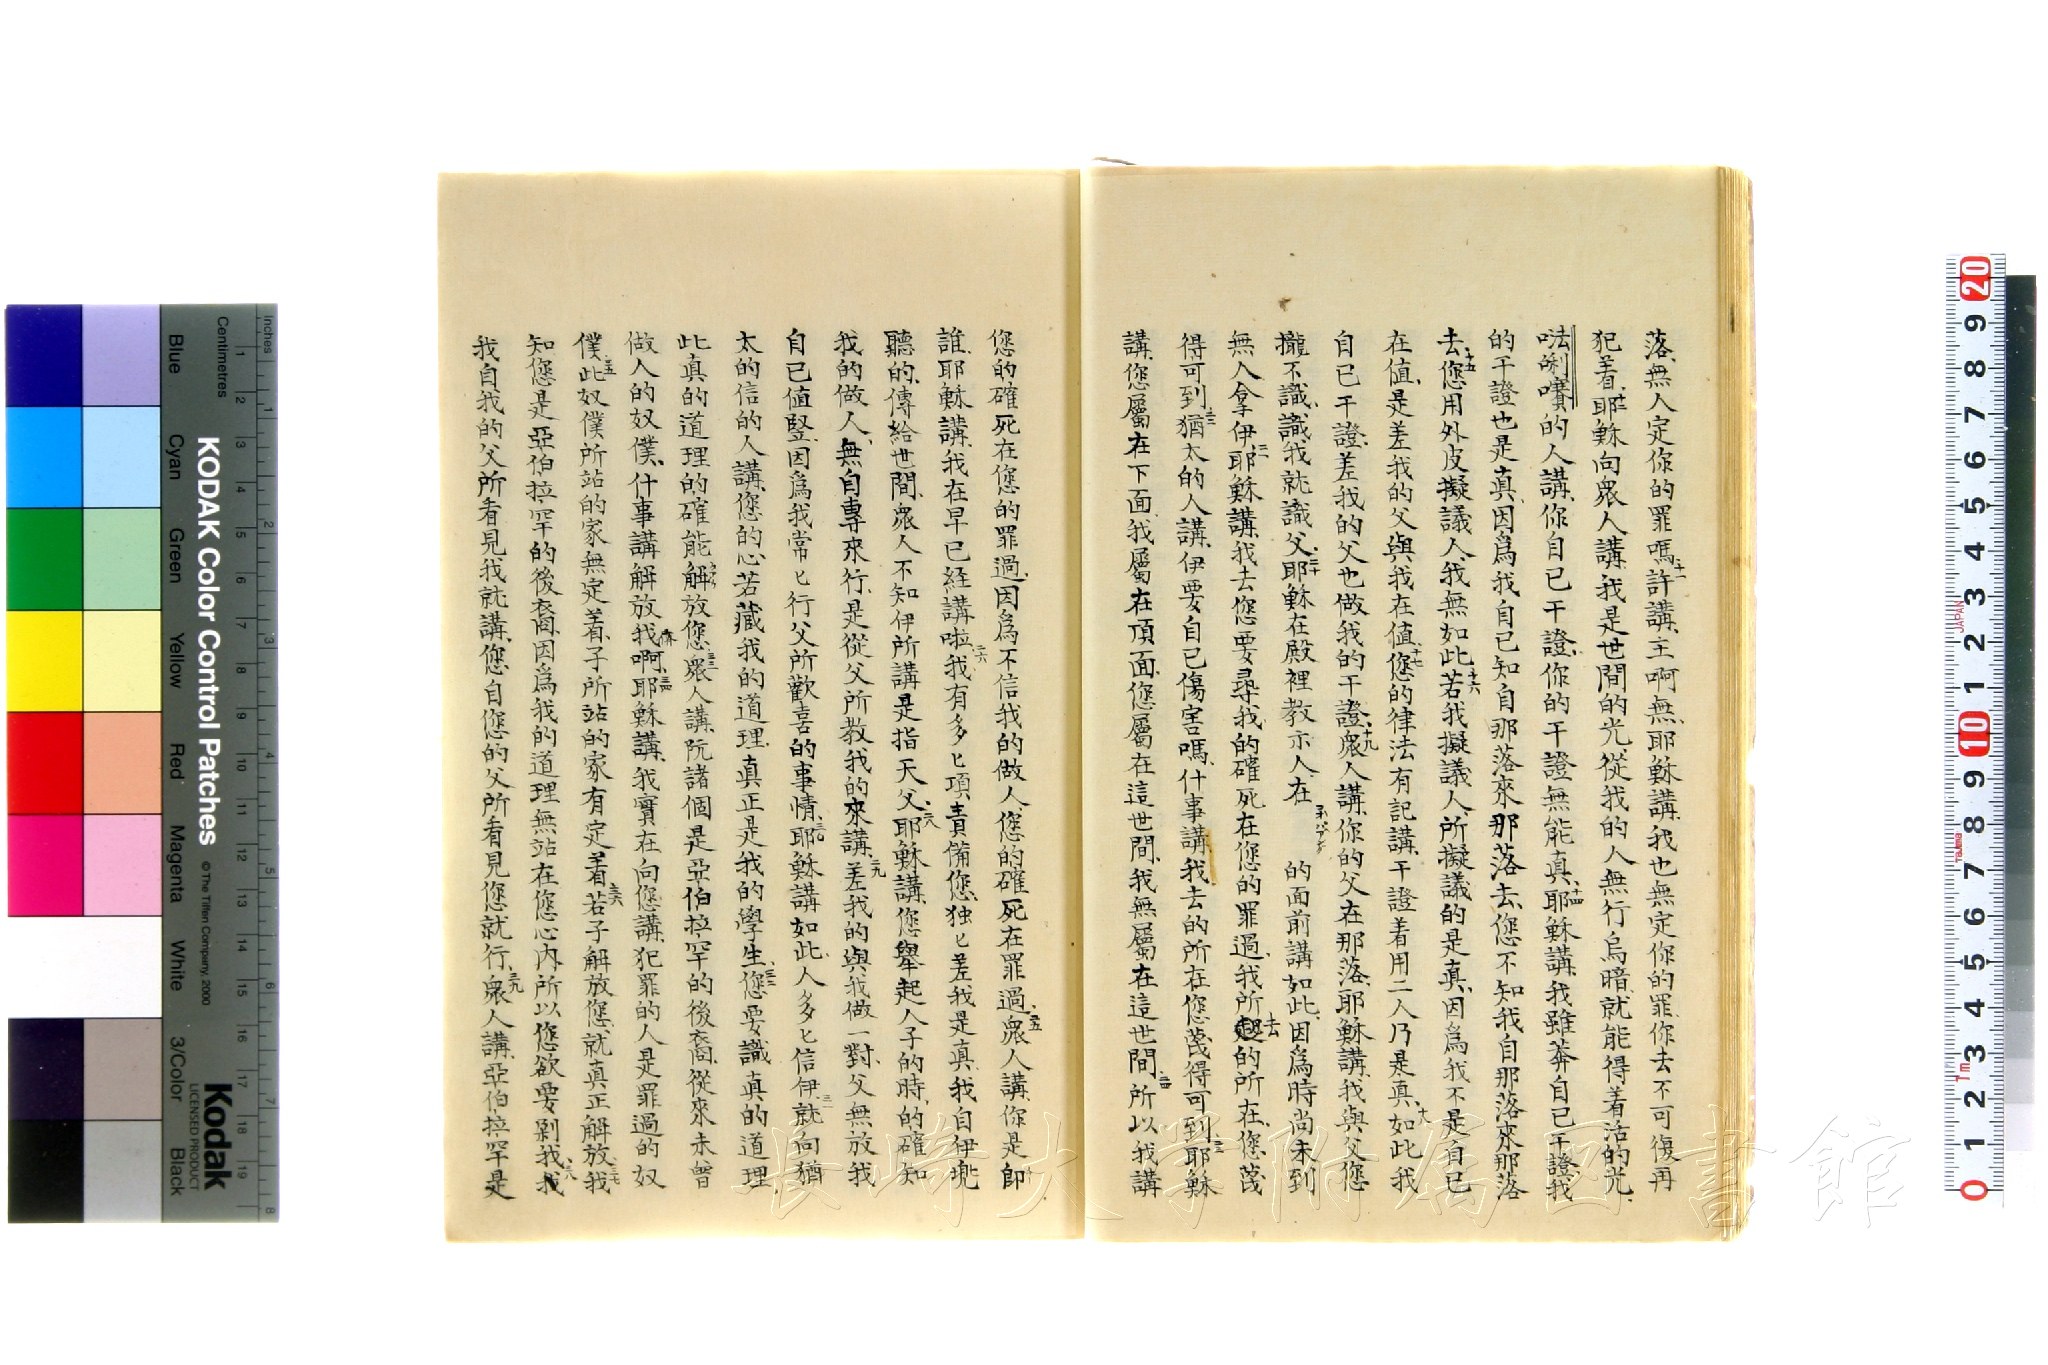 落、無人定你的罪嗎、十一許講、主啊無、耶穌講、我也無定你的罪、你去不可復再
犯着、十二耶穌向眾人講、我是世間的光、從我的人無行烏暗、就能得着活的光、
㗓唎㘔的人講、你自己干證、你的干證無能真、十四耶穌講、我雖莽自己干證、我
的干證也是真、因為我自己知自那落來那落去、您不知我自那落來那落
去、十五您用外皮擬議人、我無如此、十六若我擬議人、所擬議的是真、因為我不是自己
在值、是差我的父與我在值、十七您的律法有記講、干證着用二人乃是真、十八如此我
自己干證、差我的父也做我的干證、十九眾人講、你的父在那落、耶穌講、我與父您
攏不識、識我就識父、二十耶穌在殿裡教示人、在 的面前講如此、因為時尚未到
無人拿伊、二一耶穌講、我去您要尋我、的確死在您的罪過、我所去的所在、您蔑
得可到、二二猶太的人講、伊要自己傷害嗎、什事講、我去的所在您蔑得可到、二三耶穌
講、您屬在下面、我屬在頂面、您屬在這世間、我無屬在這世間、二四所以我講
您的確死在您的罪過、因為不信我的做人、您的確死在罪過、二五眾人講、你是即
誰、耶穌講、我在早已經講啦、二六我有多匕項責備您、独匕差我是真、我自伊兠
聽的、傳給世間、眾人不知伊所講是指天父、二八耶穌講、您舉起人子的時、的確知
我的做人、無自專來行、是從父所教我的來講、二九差我的與我做一對、父無放我
自己值竪、因為我常匕行父所歡喜的事情、三十耶穌講如此、人多匕信伊、三一就向猶
太的信的人講、您的心若藏我的道理、真正是我的學生、三二您要識真的道理
此真的道理的確能解放您、三三眾人講、阮諸個是亞伯拉罕的後裔、從來未曾
做人的奴僕、什事講解放我啊、三四耶穌講、我實在向您講、犯罪的人是罪過的奴
僕、三五此奴僕所站的家無定着、子所站的家有定着、三六若子解放您、就真正解放、三七我
知您是亞伯拉罕的後裔、因為我的道理無站在您心內、所以您欲要剿我、三八我
我自我的父所看見、我就講、您自您的父所看見、您就行、三九眾人講、亞伯拉罕是
KODAK Color Control Patches
© The Tiffen Company, 2000
Kodak
LICENSED PRODUCT
Inches
Centimetres
Blue Cyan Green Yellow Red Magenta White 3/Color Black
長崎大学附属図書館
JAPAN
Tajima
1m